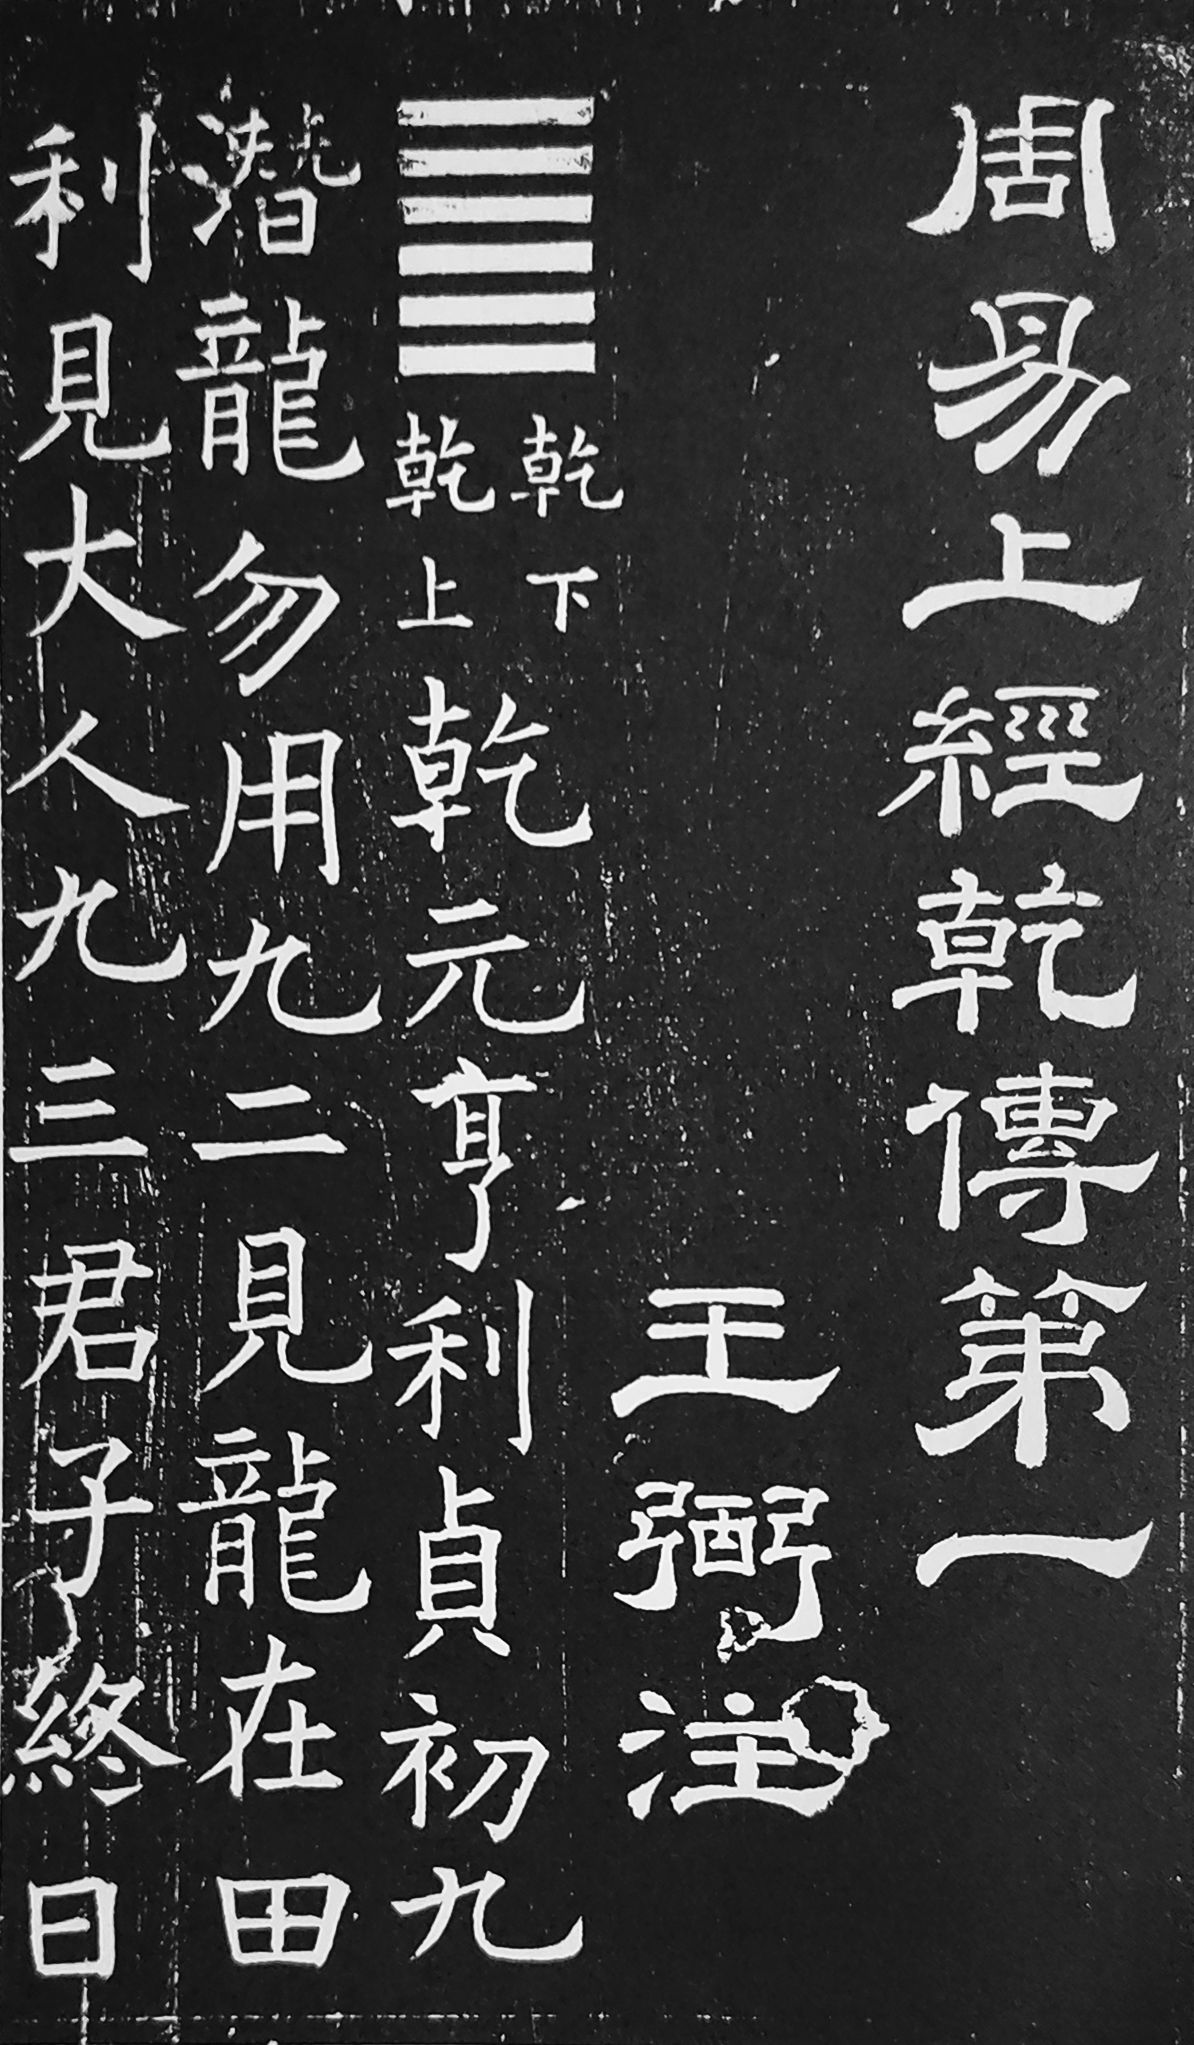 周易上經乾傳第一
王弼注
䷀乾下乾上乾元亨利貞初九
潛龍勿用九二見龍在田
利見大人九三君子終日